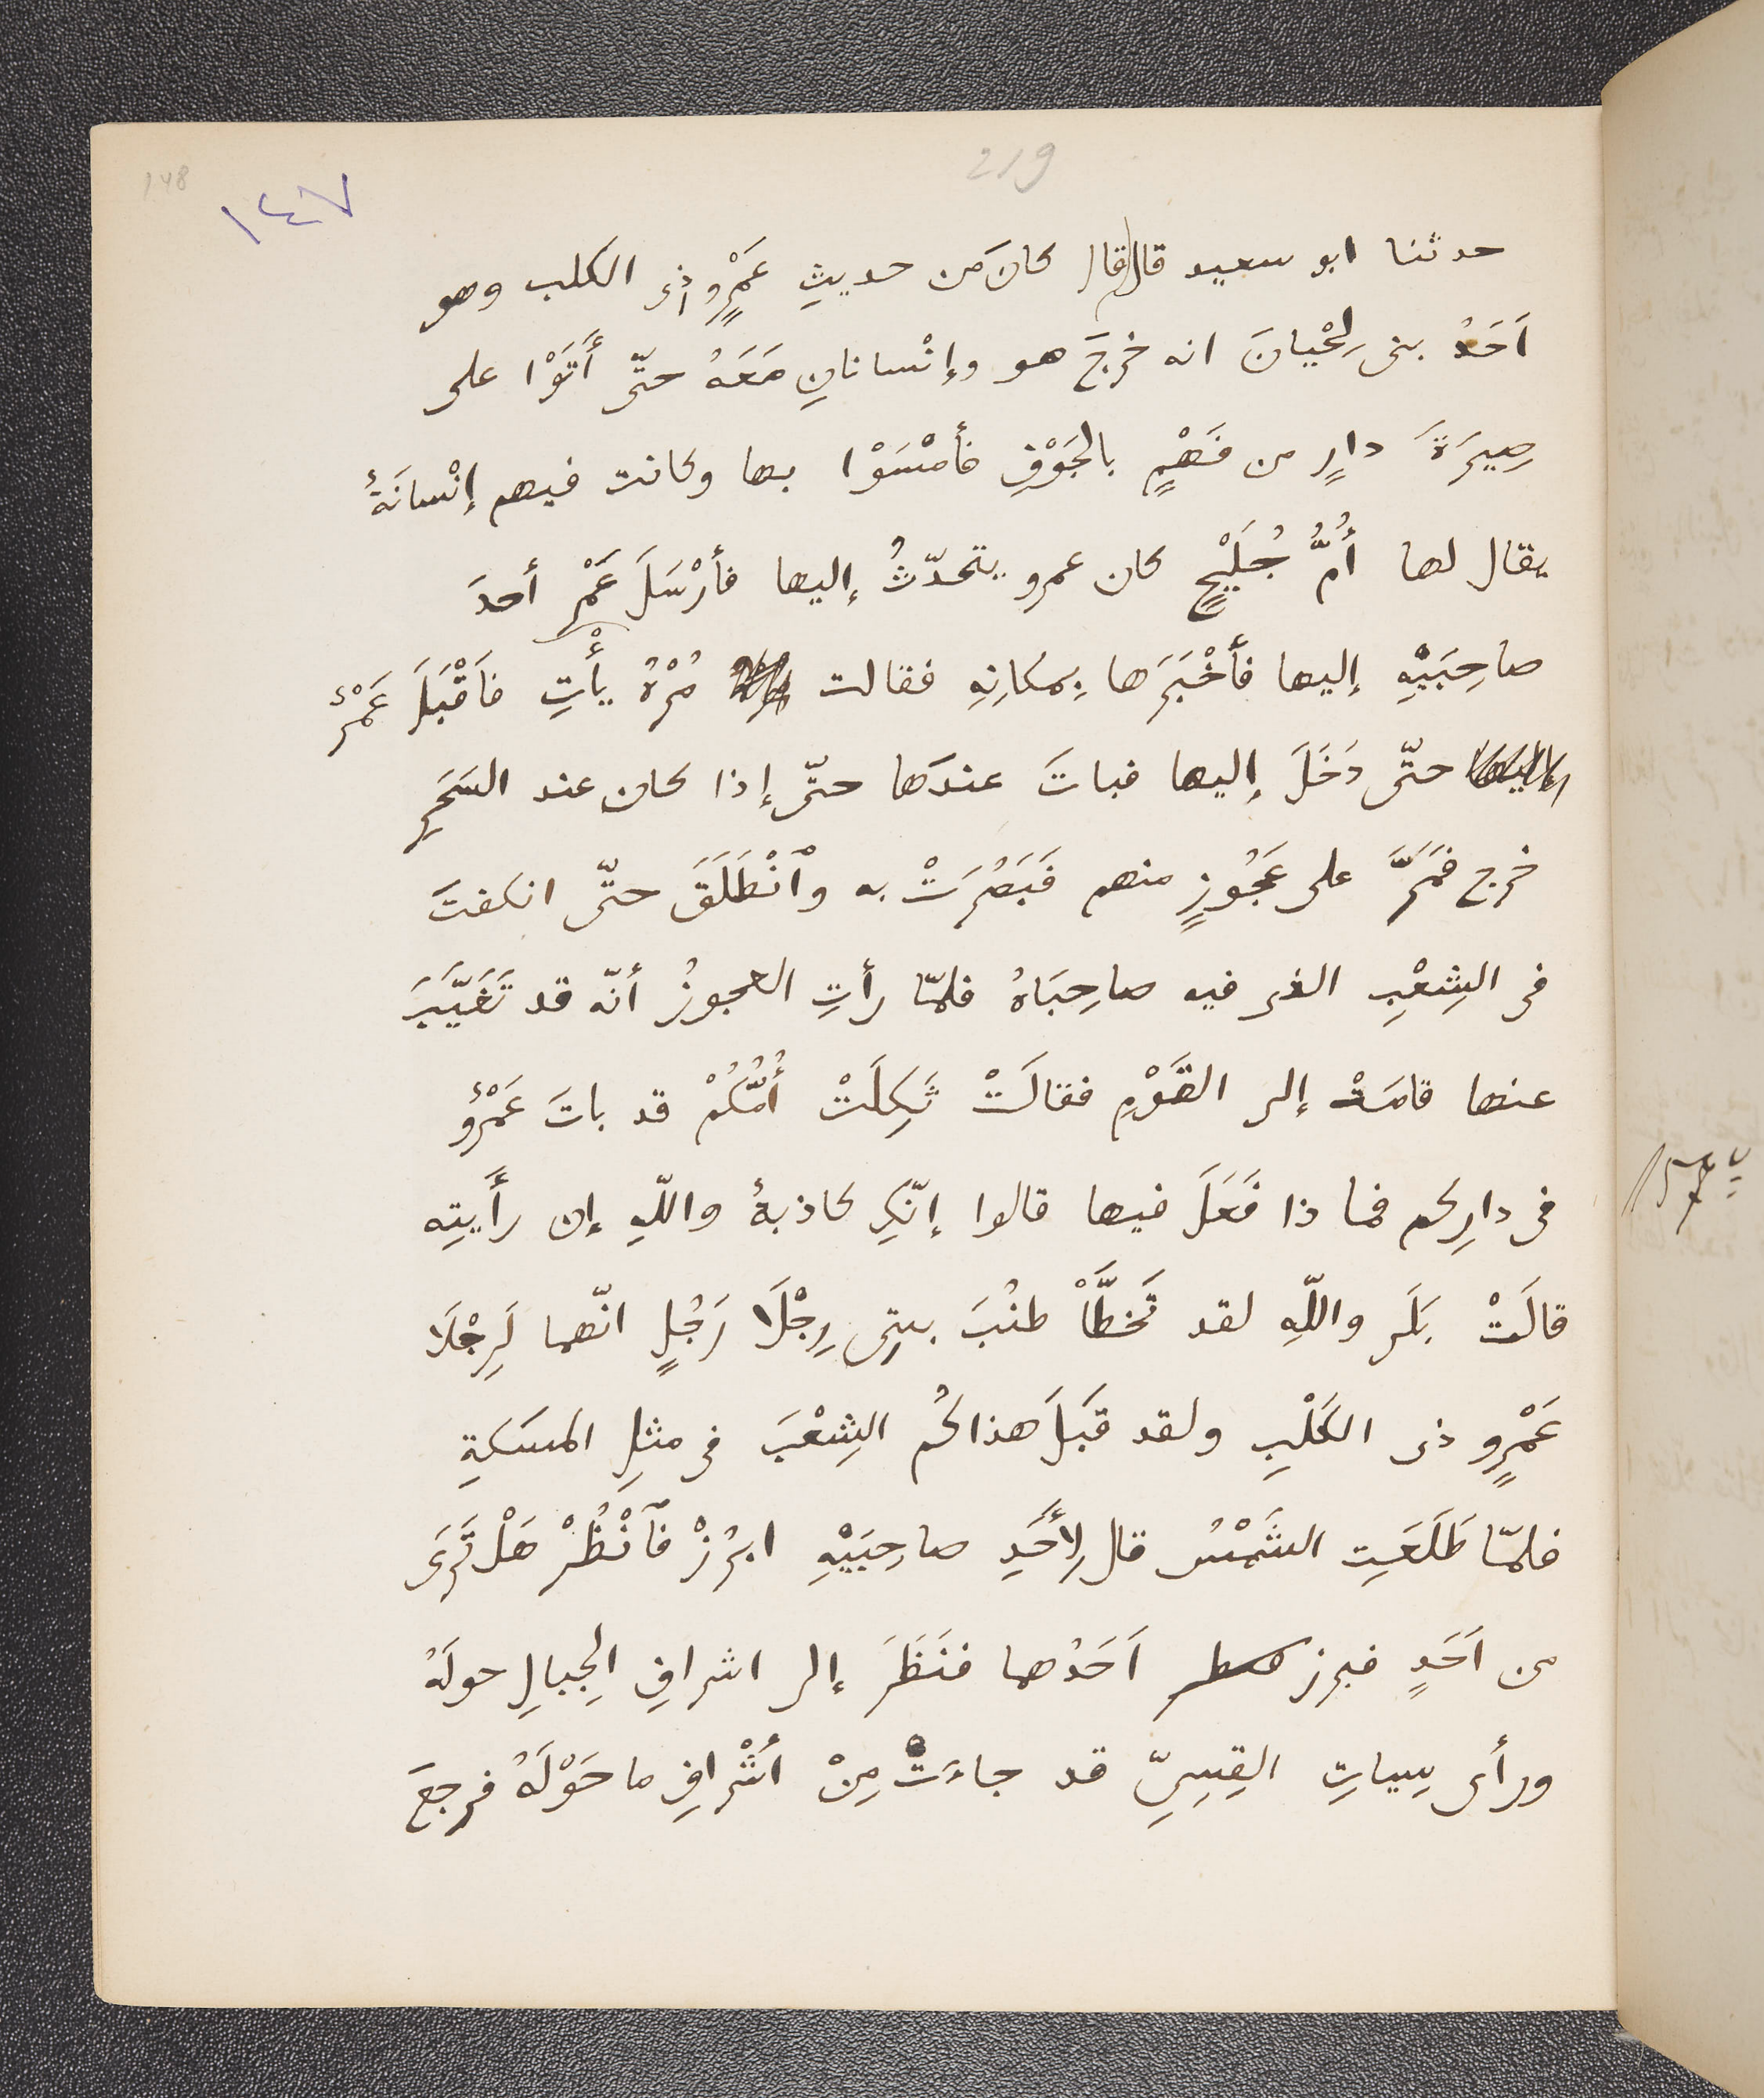 219
148
١٤٧
حدثنا ابو سعيد قال قال كانَ من حديثِ عَمْرٍو ذى الكلب وهو
اَحَدُ بنى لِحْيانَ انه خرجَ هو وإنْسانانِ مَعَهُ حتّى أَتَوْا على
صِيرَةَ دارٍ من فَهْمٍ بالجَوْفِ فأمْسَوْا بها وكانت فيهم إنْسانَةٌ
يقال لها أُمُّ جُلَيْحٍ كان عمرو يتحدّثُ إليها فأرْسَلَ عَمْر أحدَ
صاحِبَيْهِ إليها فأَخْبَرَها بِمكانِهِ فقالت مُرْهُ يأْتِ فاَقْبَلَ عَمْرٌو
حتّى دَخَلَ إليها فباتَ عندَها حتّى إذا كان عند السَحَرِ
خرج فمَرَّ على عَجُوزٍ منهم فَبَصُرَتْ به وٱنْطَلَقَ حتّى انكفتَ
فى الشِعْبِ الذى فيه صاحِبَاهُ فلمّا رأتِ العجوزُ أنّه قد تَغَيَّبَ
عنها قامَتْ إلى القَوْمِ فقالَتْ ثَكِلَتْ أُمُّكُمْ قد باتَ عَمْرٌو
فى دارِكم فما ذا فَعَلَ فيها قالوا إنّكِ كاذبةٌ واللهِ إن رأَيتِه
قالَتْ بَلَى واللّهِ لقد تَخَطَّأَ طنُبَ بيتِى رِجْلَا رَجُلٍ انّهما لَرِجْلَا
عَمْرٍو ذى الكَلْبِ ولقد قبَلَ هذاكُم الشِعْبَ فى مثلِ المسَكةِ
فلمّا طَلَعَتِ الشَمْسُ قال لِأَحَدِ صاحِبَيْهِ ابرُزْ فٱنْظُرْ هَلْ تَرَى
من اَحَدٍ فبرز اَحَدُهما فنَظَرَ إلى اشرافِ الجِبالِ حولَهُ
ورأى سِياتِ القِسِىِّ قد جاءَتْ مِنْ أشْرافِ ما حَوْلَهُ فرجعَ